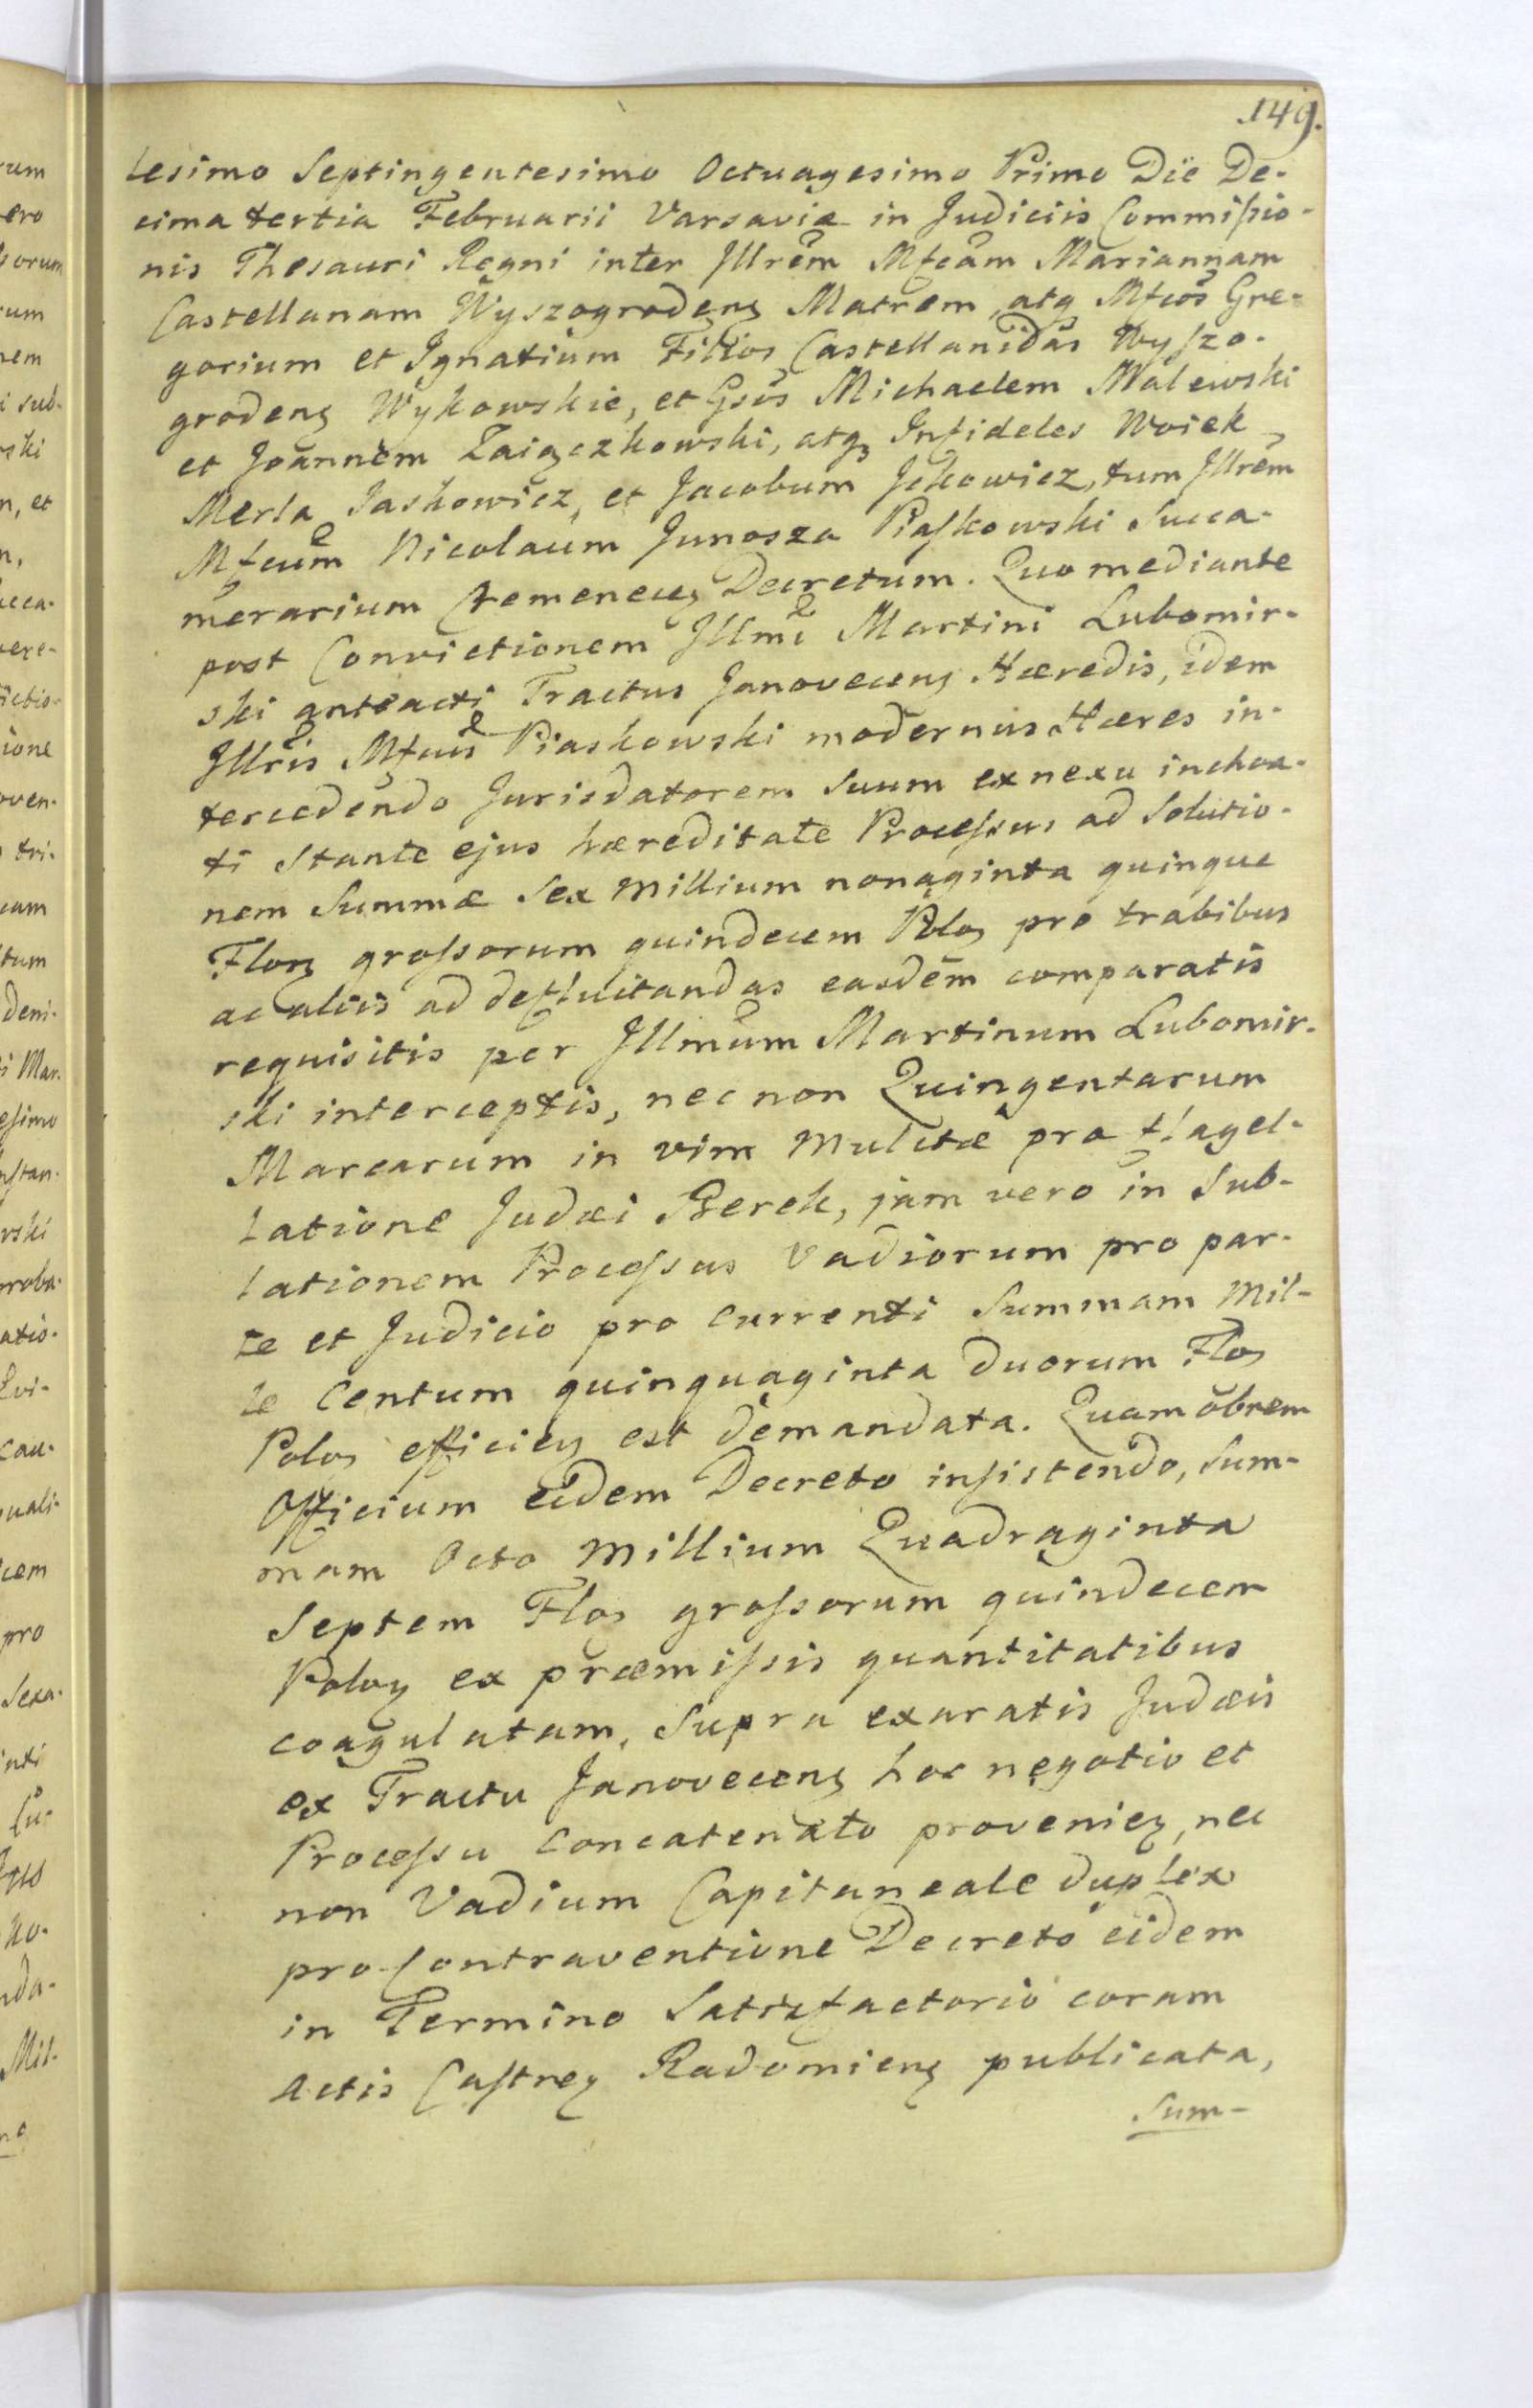 149.
lesimo Septingentesimo Octuagesimo Primo Die De-
cima tertia Februarii Varsaviæ in Judiciis Commissio-
nis Thesauri Regni inter Illrem Mfcam Mariannam
Castellanam Wyszogrodens Matrem, atq Mfcos Gre-
gorium et Ignatium Filios Castellanidas Wyszo-
grodens Wykowskie, et Gsos Michaelem Malewski
et Joannem Zaięczkowski, atq Infideles Woiek
Merla Jaskowicz, et Jacobum Ickowicz, tum Illrem
Mfcum Nicolaum Junosza Piaskowski Succa-
merarium Cremenecen Decretum. Quo mediante
post Convictionem Illmi Martini Lubomir-
ski anteacti Tractus Janovecens Hæredis, idem
Illris Mfcus Piaskowski modernus Hæres in-
tercedendo Jurisdatorem suum ex nexu inchoa-
ti stante ejus hæreditate Processus ad Solutio-
nem Summæ Sex Millium nonaginta quinque
Flor grossorum quindecem Pol pro trabibus
ac aliis ad defluitandas easdem comparatis
requisitis per Illmum Martinum Lubomir-
ski interceptis, nec non Quingentarum
Marcarum in vim Mulctæ pro flagel-
latione Judæi Berek, jam vero in Sub-
lationem Processus Vadiorum pro par-
te et Judicio pro Currenti Summam Mil-
le Centum quinquaginta duorum Flo
Polo efficien est demandata. Quam obrem
Officium eidem Decreto insistendo, Sum-
mam Octo Millium Quadraginta
Septem Flo grossorum quindecem
Polo ex præmissis quantitatibus
coagulatam, Supra exaratis Judæis
ex Tractu Janovecens hoc negotio et
Processu Concatenato provenien, nec
non Vadium Capitaneale duplex
pro Contraventione Decreto eidem
in Termino Satisfactorio coram
Actis Castren Radomiens publicata,
Sum-